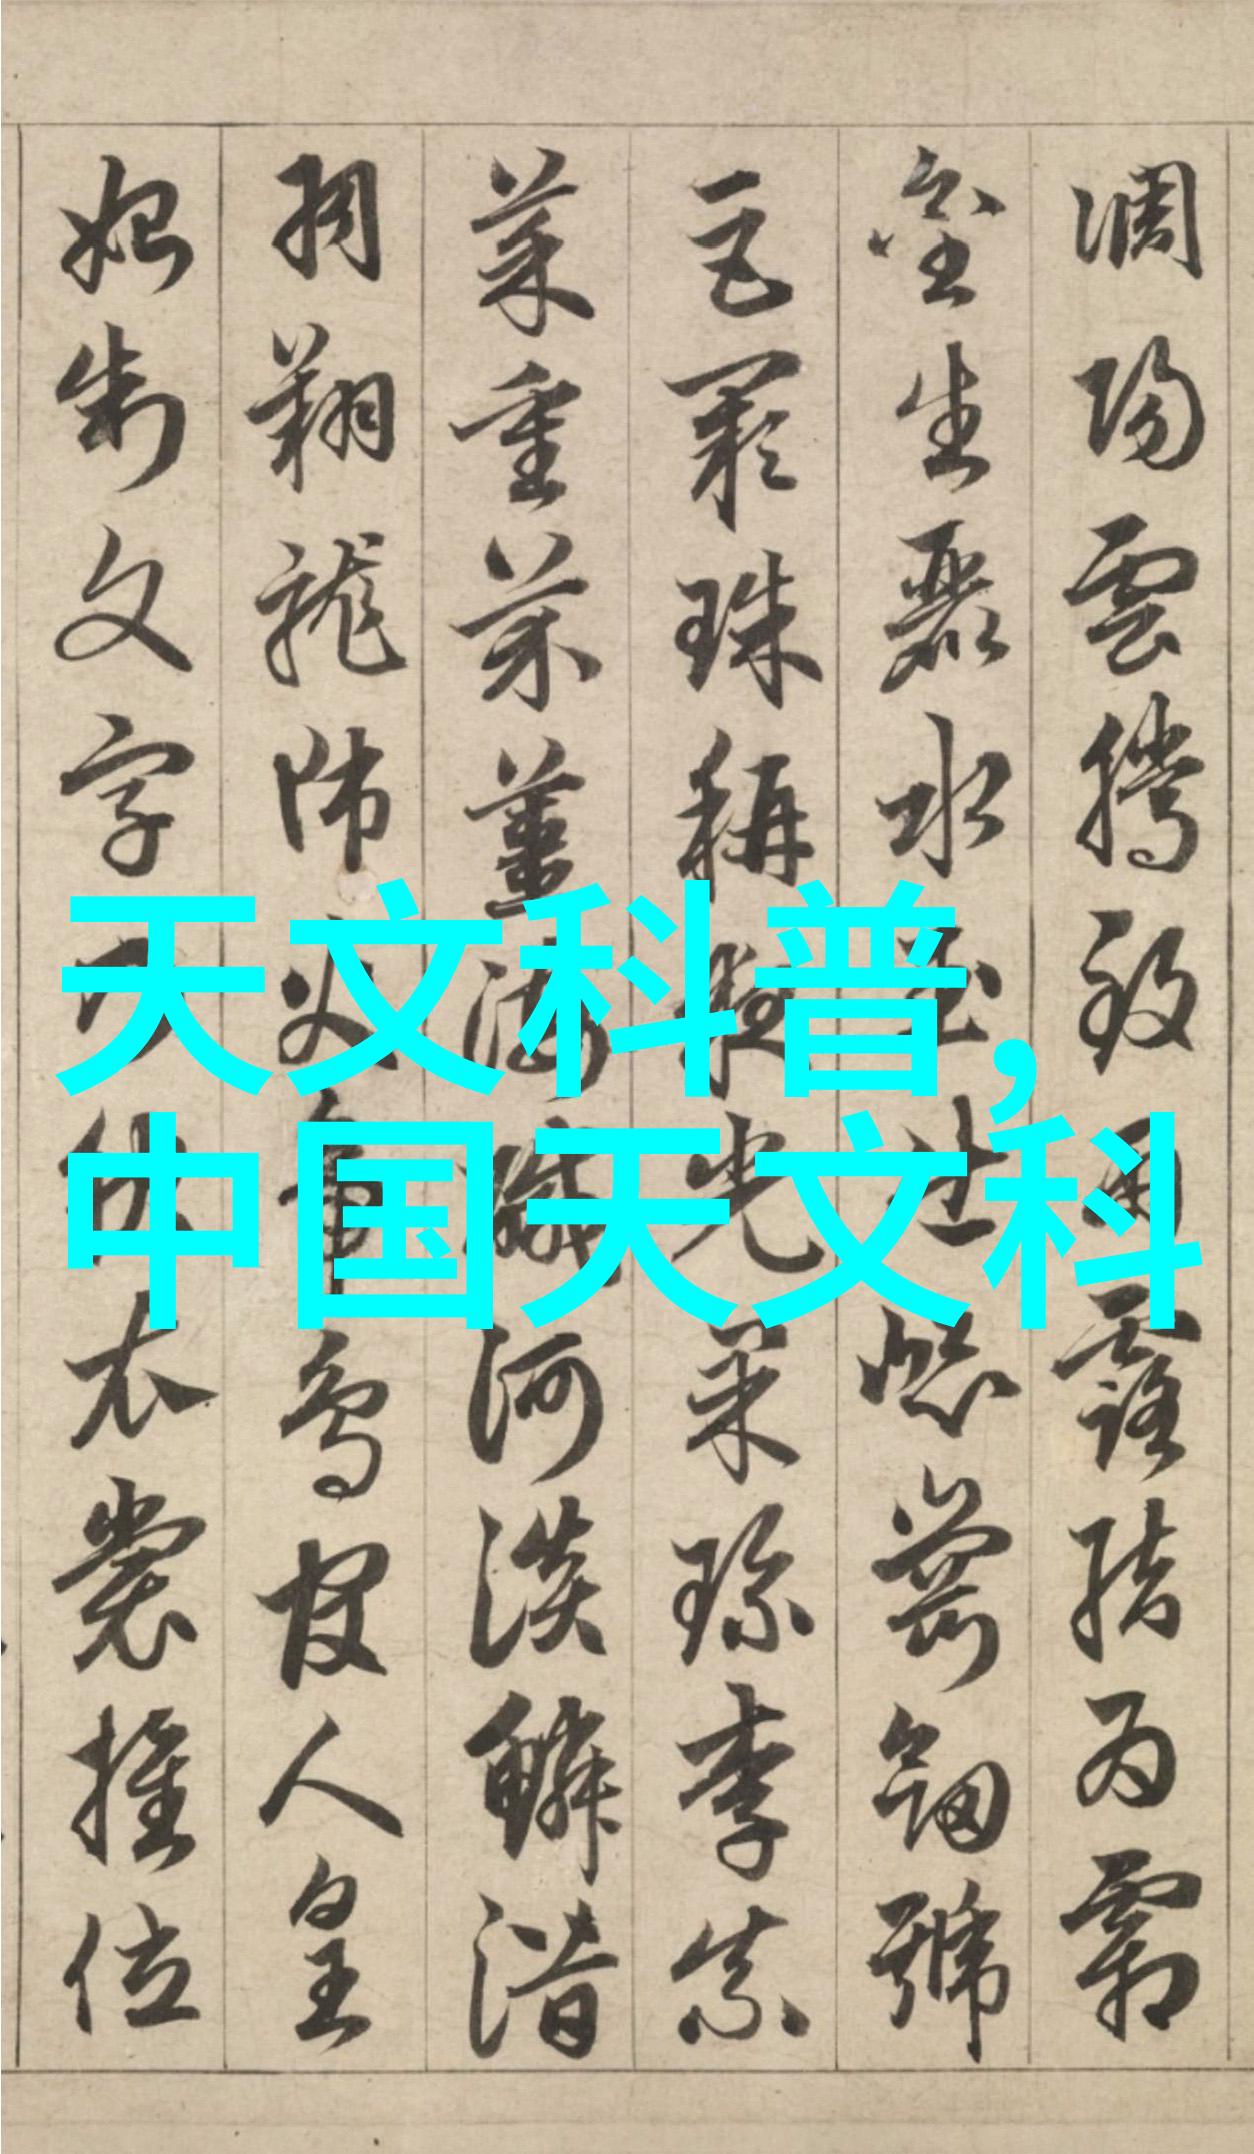 調陽雲騰致雨露結為霜
金生麗水玉出崑崗劍號
巨闕珠稱夜光果珍李柰
菜重芥薑海鹹河淡鱗潛
羽翔龍師火帝鳥官人皇
始制文字乃服衣裳推位
天文科普,
中国天文科